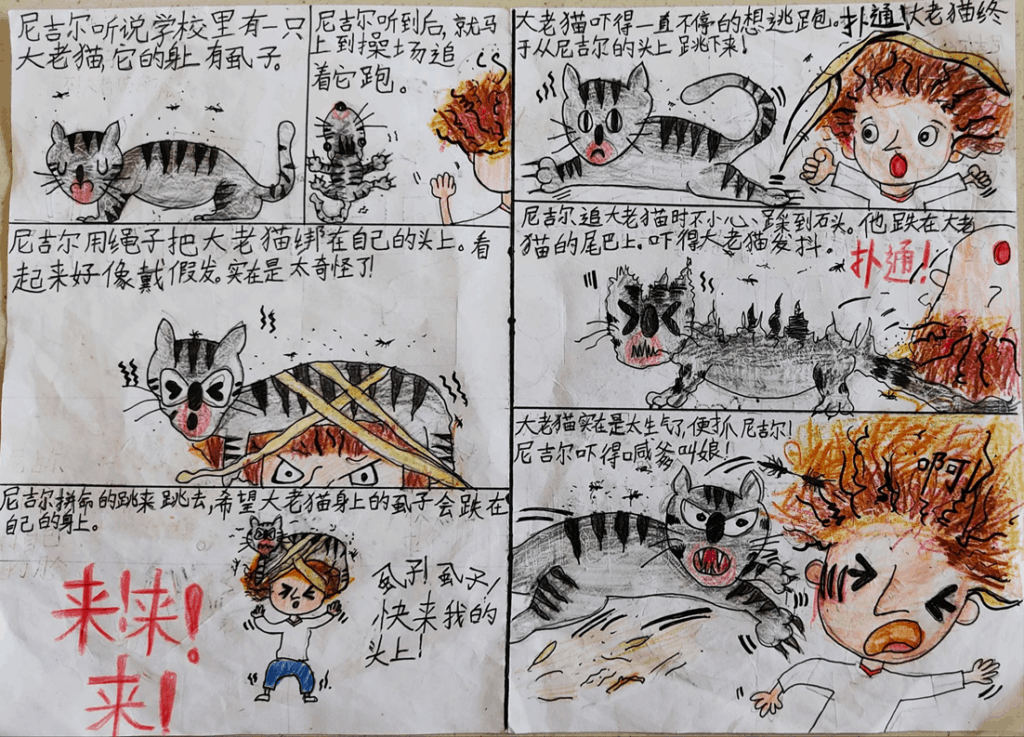 尼吉尔听说学校里有一只
大老猫,它的身上有虱子。
尼吉尔听到后,就马
上到操场追
着它跑。
尼吉尔用绳子把大老猫绑在自己的头上。看
起来好像戴假发。实在是太奇怪了!
尼吉尔拼命的跳来跳去,希望大老猫身上的虱子会跌在
自己的身上。
来!来!
来!
虱子!虱子!
快来我的
头上!
大老猫吓得一直不停的想逃跑。扑通!大老猫终
于从尼吉尔的头上跳下来!
尼吉尔追大老猫时不小心踩到石头。他跌在大老
猫的尾巴上。吓得大老猫发抖。
扑通!
大老猫实在是太生气了,便抓尼吉尔!
尼吉尔吓得喊爹叫娘!
啊!